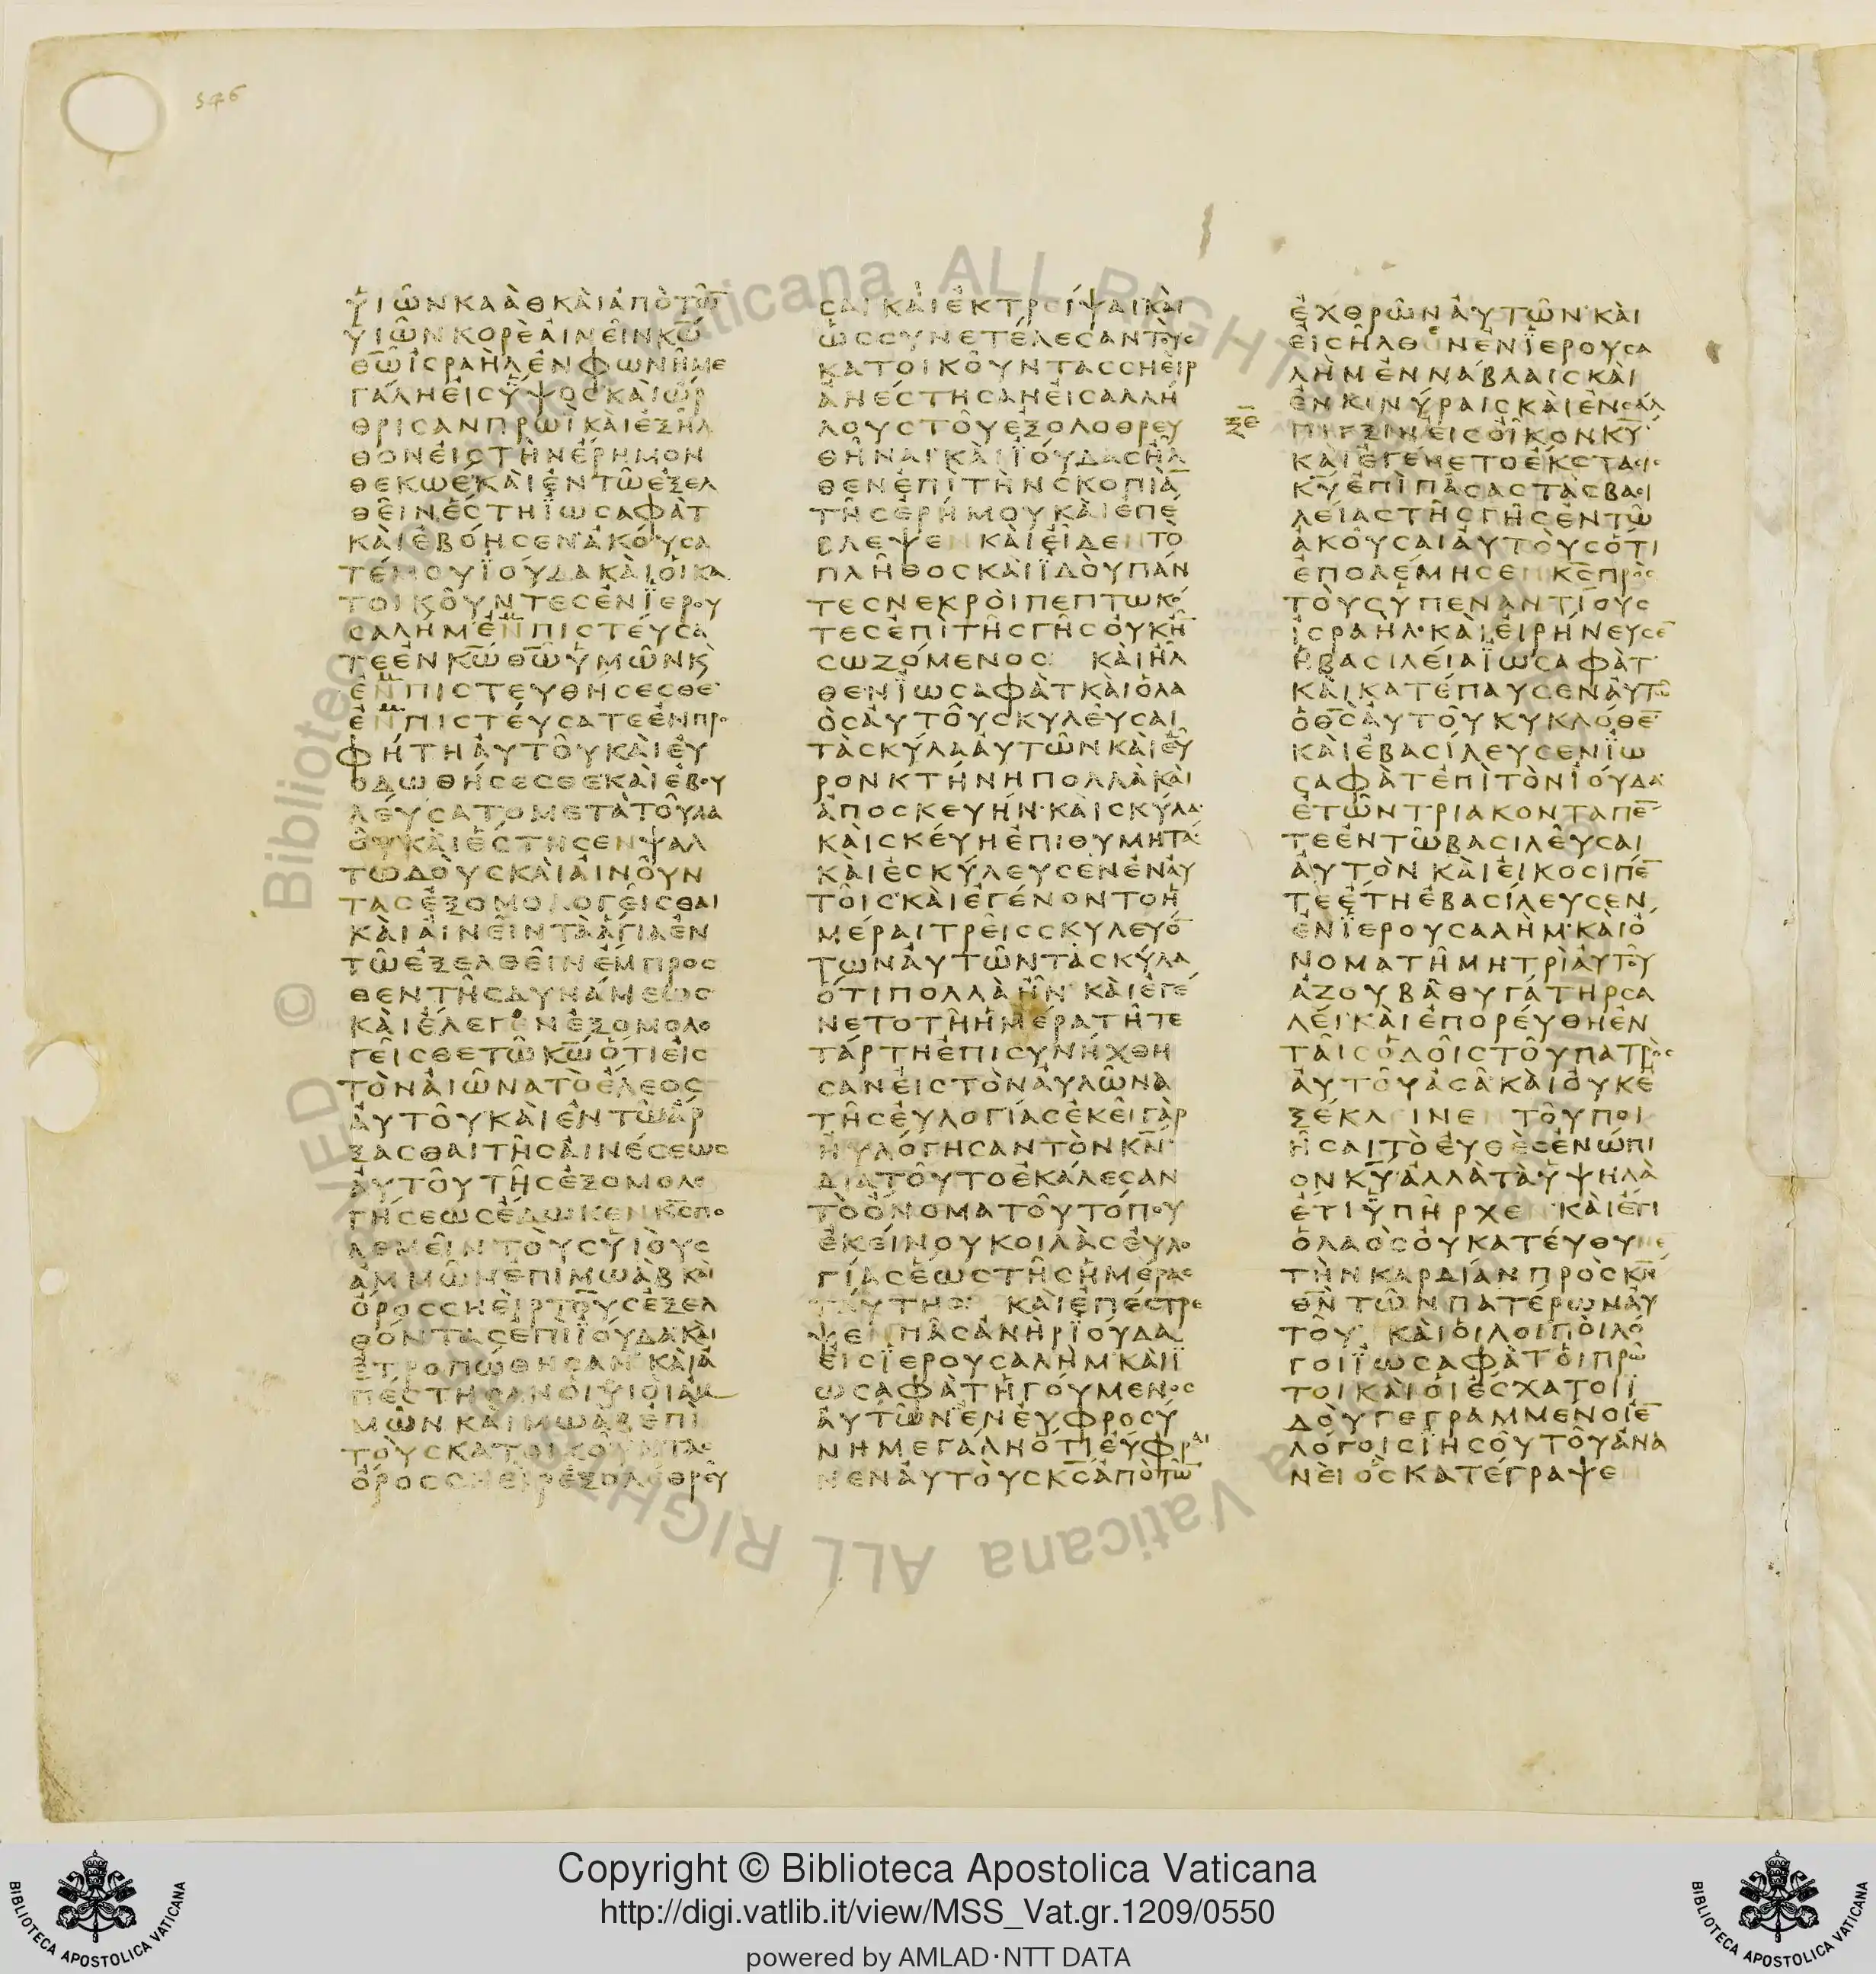 546
ὑιῶν κααθ καὶ ἀπὸ τῶ̅
υἱῶν κορὲ αἰνεῖν κ̅ω̅
θ̅ω̅ ἰσραὴλ ἐν φωνῆ με
γάλη εἰς ὕψος καὶ ὤρ
θρισαν πρωῒ καὶ ἐξῆλ
θον εἰς τὴν ἔρημον
θεκωέ καὶ ἐν τῶ ἐξελ
θεῖν ἔστη ϊωσαφὰτ
καὶ ἐβόησεν ἀκούσα
τέ μου ϊούδα καὶ οἱ κα
τοικοῦντες ἐν ϊερου
σαλήμ ἐνπιστεύσα
τε ἐν κ̅ω̅ θ̅ω̅ ὑμῶν κ̀
ἐνπιστευθήσεσθε
ἐνπιστεύσατε ἐν προ
φήτη αὐτοῦ καὶ εὐ
οδωθήσεσθε καὶ ἐβου
λεύσατο μετὰ τοῦ λα
οῦ καὶ ἔστησεν ψαλ
τωδοὺς καὶ αἰνοῦν
τας ἐξομολογεῖσθαι
καὶ αἰνεῖν τὰ ἅγια ἐν
τῶ ἐξελθεῖν ἔμπροσ
θεν τῆς δυνάμεως
καὶ ἔλεγον ἐξομολο
γεῖσθε τῶ κ̅ω̅ ὅτι εἰς
τὸν αἰῶνα τὸ ἔλεος
αὐτοῦ καὶ ἐν τῶ ἄρ
ξασθαι τῆς αἰνέσεως
αὐτοῦ τῆς ἐξομολο
γήσεως ἔδωκεν κ̅ς̅ πο
λεμεῖν τοὺς ὑιοὺς
ἀμμῶν ἐπὶ μωὰβ καὶ
ὄρος σηεὶρ τοὺς ἐξελ
θόντας ἐπὶ ϊούδα καὶ
ἐτροπώθησαν καὶ ἀ
πέστησαν οἱ ὑιοὶ ἀμ
μῶν καὶ μωὰβ ἐπὶ
τοὺς κατοικοῦντας
ὄρος σηεὶρ ἐξολεθρεῦ
σαι καὶ ἐκτρεῖψαι καὶ
ὡς συνετέλεσαν τοὺς
κατοικοῦντας σηεὶρ
ἀνέστησαν εἰς ἀλλή
λους τοῦ ἐξολοθρευ
θῆναι καὶ ϊούδας ἦλ
θεν ἐπὶ τὴν σκοπιὰ̅
τῆς ἐρήμου καὶ ἐπέ
βλεψεν καὶ εἶδεν τὸ
πλῆθος καὶ ϊδοὺ πάν
τες νεκροὶ πεπτωκό
τες ἐπὶ τῆς γῆς οὐκ ἦ̅
σωζόμενος καὶ ἦλ
θεν ϊωσαφὰτ καὶ ὁ λα
ὸς αὐτοῦ σκυλεῦσαι
τὰ σκύλα αὐτῶν καὶ εὗ
ρον κτήνη πολλὰ καὶ
ἀποσκευήν καὶ σκύλα
καὶ σκεύη ἐπιθυμητά
καὶ ἐσκύλευσεν ἐν αὐ
τοῖς καὶ ἐγένοντο ἡ
μέραι τρεῖς σκυλευό̅
των αὐτῶν τὰ σκύλα
ὅτι πολλὰ ἦν καὶ ἐγέ
νετο τῆ ἡμέρα τῆ τε
τάρτη ἐπισυνήχθη
σαν εἰς τὸν αὐλῶνα
τῆς εὐλογίας ἐκεῖ γὰρ
ηὐλόγησαν τὸν κ̅ν̅
διατοῦτο ἐκάλεσαν
τὸ ὄνομα τοῦ τόπου
ἐκείνου κοιλὰς εὐλο
γίας ἕως τῆς ἡμέρας
ταύτης καὶ ἐπέστρε
ψεν πᾶς ἀνὴρ ϊούδα
εἰς ϊερουσαλὴμ καὶ ϊ
ωσαφὰτ ἡγούμενος
αὐτῶν ἐν εὐφροσύ
νη μεγάλη ὅτι εὔφραι
νεν αὐτοὺς κ̅ς̅ ἀπὸ τῶ̅
ἐχθρῶν αὐτῶν καὶ
εἰσῆλθον ἐν ϊερουσα
λὴμ ἐν νάβλαις καὶ
ἐν κινύραις καὶ ἐν σάλ
ξ̅ε̅
πιγξιν εἰς οἶκον κ̅υ̅
καὶ ἐγένετο ἔκστασις
κ̅υ̅ ἐπὶ πάσας τὰς βασι
λείας τῆς γῆς ἐν τῶ
ἀκοῦσαι αὐτοὺς ὅτι
ἐπολέμησεν κ̅ς̅ πρὸς
τοὺς ὑπεναντίους
ἰσραὴλ καὶ εἰρήνευσε̅
ἡ βασιλεία ϊωσαφὰτ
καὶ κατέπαυσεν αὐτῶ
ὁ θ̅ς̅ αὐτοῦ κυκλόθε̅
καὶ ἐβασίλευσεν ϊω
σαφὰτ ἐπὶ τὸν ϊούδα
ἐτῶν τριακονταπέ̅
τε ἐν τῶ βασιλεῦσαι
αὐτὸν καὶ εἴκοσι πέ̅
τε ἔτη ἐβασίλευσεν
ἐν ϊερουσαλὴμ καὶ ὄ
νομα τῆ μητρὶ αὐτοῦ
ἀζουβᾶ θυγάτηρ σα
λεί καὶ ἐπορεύθη ἐν
ταῖς ὁδοῖς τοῦ πατρὸς
αὐτοῦ ἀσά καὶ οὐκ ἐ
ξέκλεινεν τοῦ ποι
ῆσαι τὸ εὐθὲς ἐνώπι
ον κ̅υ̅ ἀλλὰ τὰ ὑψηλὰ
ἔτι ὑπῆρχεν καὶ ἔτι
ὁ λαὸς οὐ κατεύθυνε
τὴν καρδίαν πρὸς κ̅ν̅
θ̅ν̅ τῶν πατέρων αὐ
τοῦ καὶ οἱ λοιποὶ λό
γοι ϊωσαφὰτ οἱ πρῶ
τοι καὶ οἱ ἔσχατοι ϊ
δοὺ γεγραμμένοι ἐ̅
λόγοις ἰησοῦ τοῦ ἀνα
νεὶ ὃς κατέγραψεν
Copyright © Biblioteca Apostolica Vaticana
http://digi.vatlib.it/view/MSS_Vat.gr.1209/0550
powered by AMLAD·NTT DATA
BIBLIOTECA APOSTOLICA VATICANA
BIBLIOTECA APOSTOLICA VATICANA